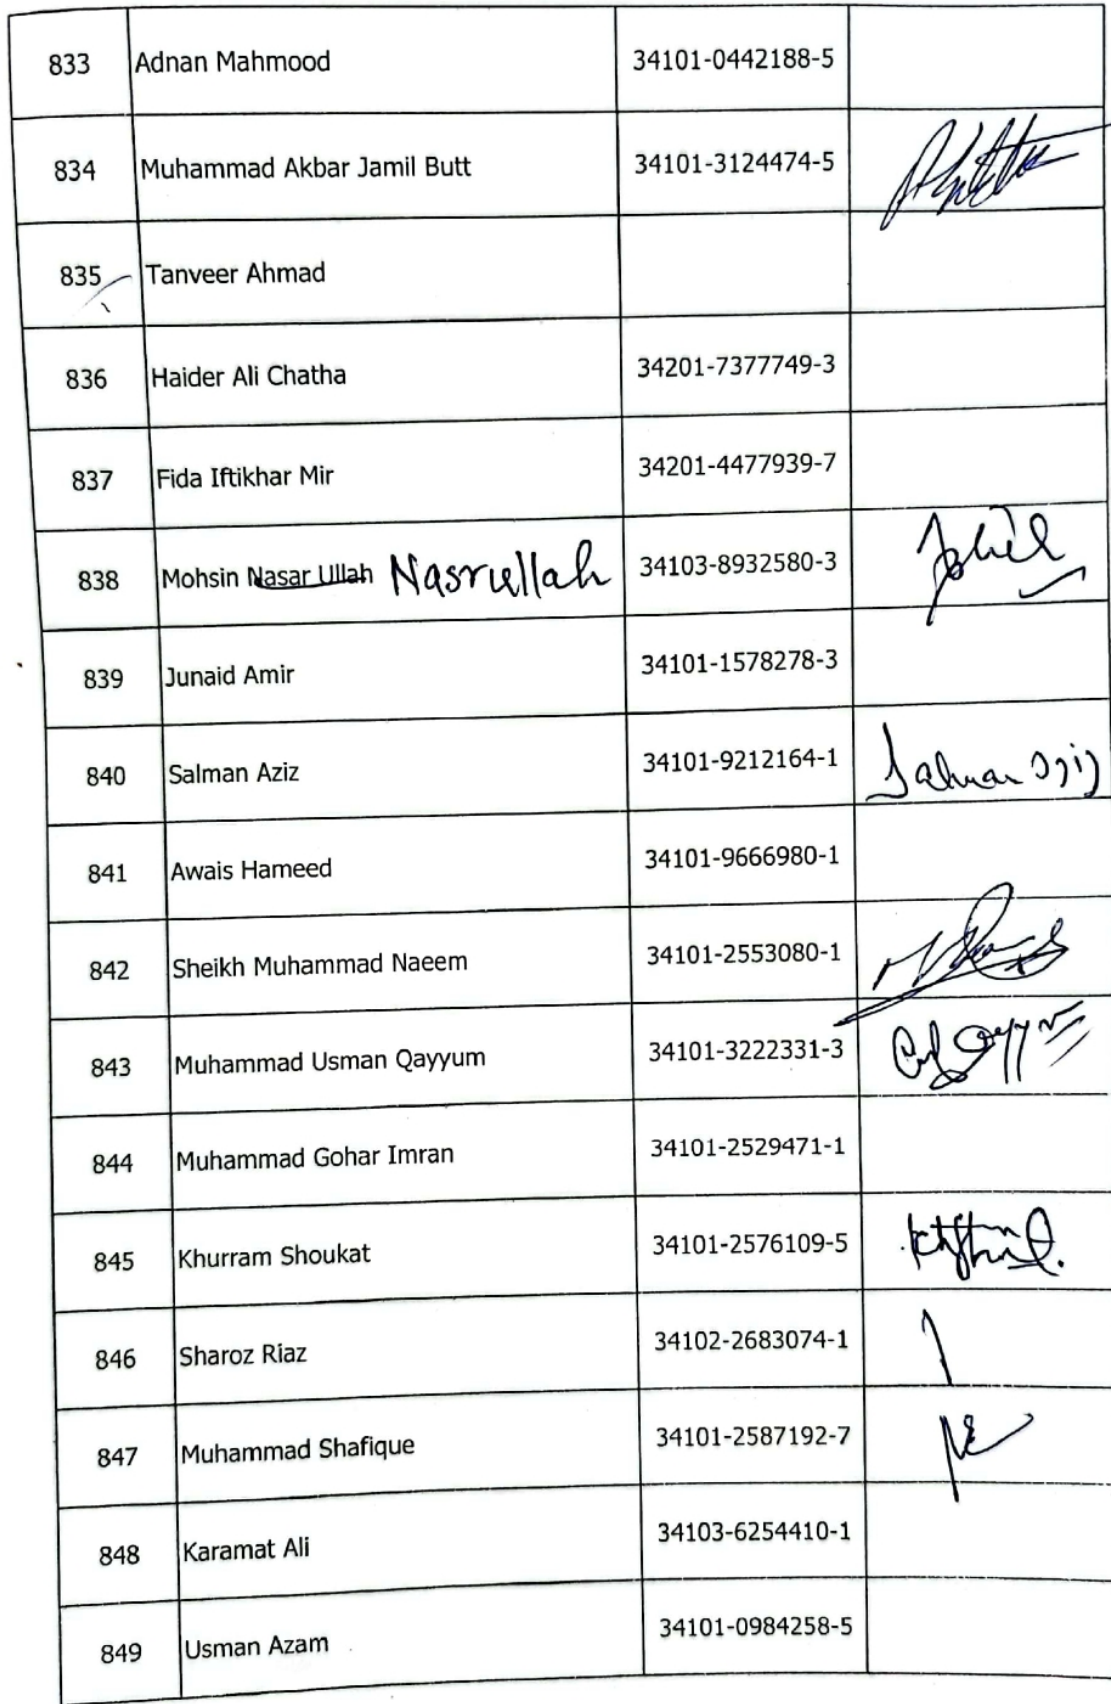 833 Adnan Mahmood 34101-0442188-5
834 Muhammad Akbar Jamil Butt 34101-3124474-5
835 Tanveer Ahmad
836 Haider Ali Chatha 34201-7377749-3
837 Fida Iftikhar Mir 34201-4477939-7
838 Mohsin Nasar Ullah Nasrullah 34103-8932580-3
839 Junaid Amir 34101-1578278-3
840 Salman Aziz 34101-9212164-1
841 Awais Hameed 34101-9666980-1
842 Sheikh Muhammad Naeem 34101-2553080-1
843 Muhammad Usman Qayyum 34101-3222331-3
844 Muhammad Gohar Imran 34101-2529471-1
845 Khurram Shoukat 34101-2576109-5
846 Sharoz Riaz 34102-2683074-1
847 Muhammad Shafique 34101-2587192-7
848 Karamat Ali 34103-6254410-1
849 Usman Azam 34101-0984258-5